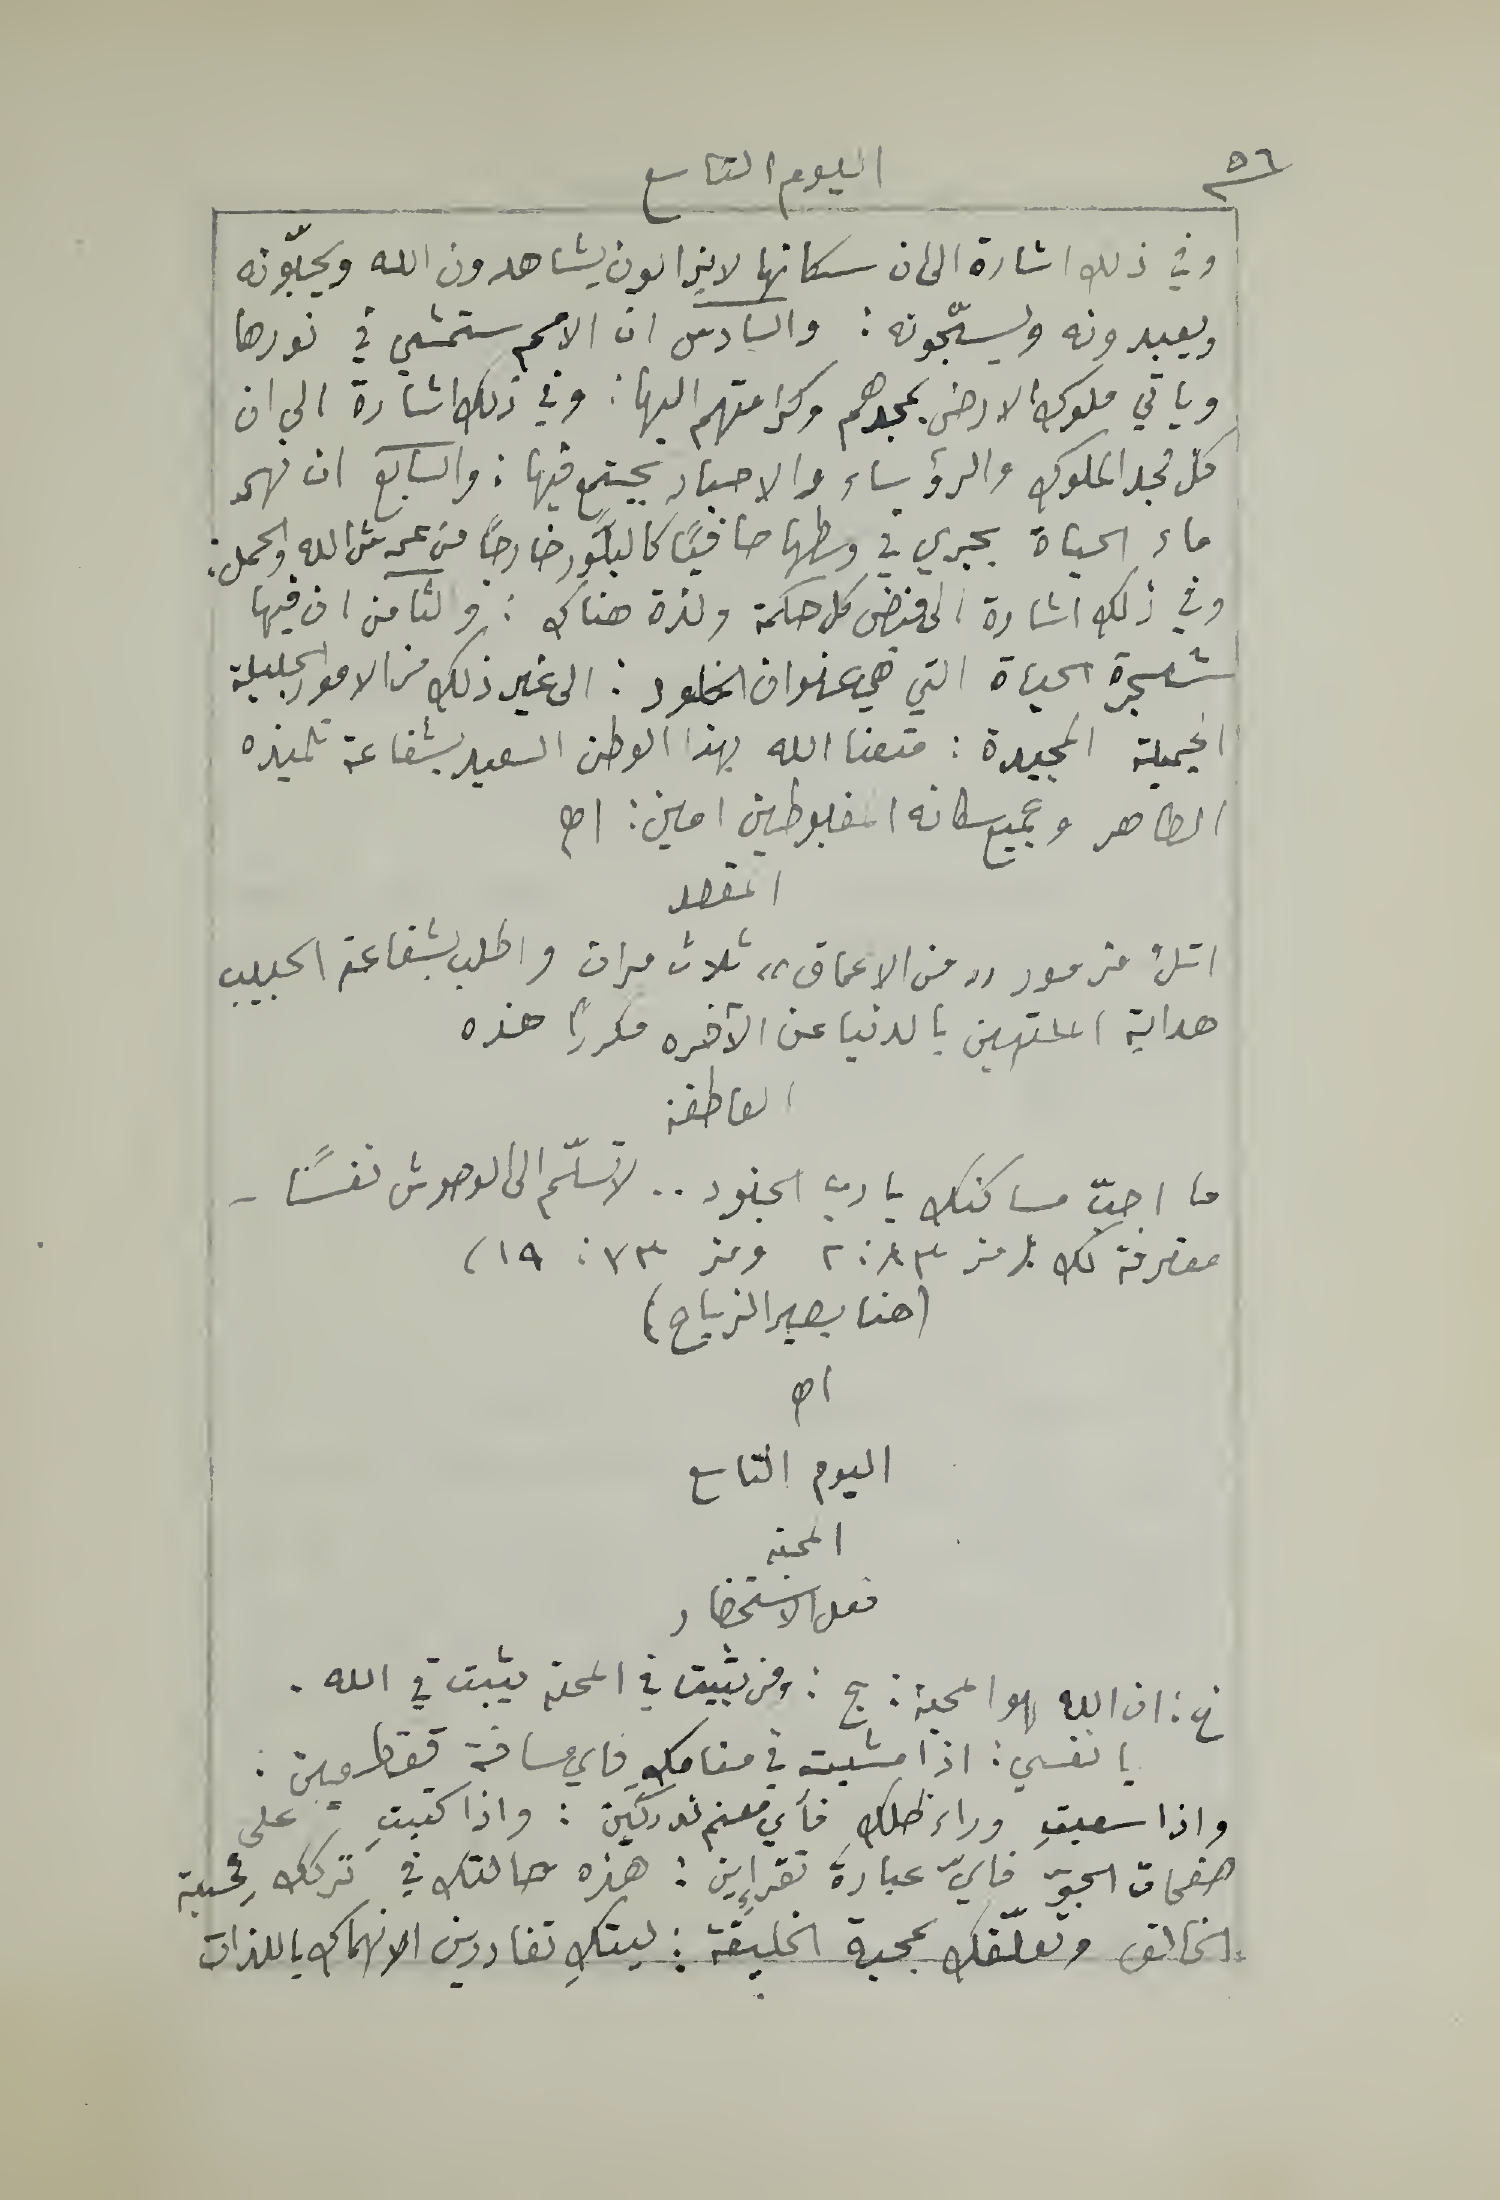 ٥٦
اليوم التاسع
وفي ذلك اشارة الى ان سكانها لا يزالون يشاهدون الله ويحبّونه
ويعبدونه ويسبّحونه : والسادس ان الامم ستمشي في نورها
وياتي ملوك الارض بمجدهم وكرامتهم اليها : وفي ذلك اشارة الى ان
كل مجد الملوك والرؤساء والاحبار يجتمع فيها : والسابع ان نهر
ماء الحياة يجري في وسطها صافيًا كالبلّور خارجًا من عرش الله والحمل :
وفي ذلك اشارة الى فيض كل حكمة ولذة هناك : والثامن ان فيها
شجرة الحياة التي هي عنوان الخلود : الى غير ذلك من الامور الجليلة
الجميلة المجيدة : متعنا الله بهذا الوطن السعيد بشفاعة تلميذه
الطاهر وجميع سكانه المغبوطين امين : اه
المقصد
اتلُ مزمور ,, من الاعماق ,, ثلاث مرات واطلب بشفاعة الحبيب
هداية الملتهين بالدنيا عن الآخره مكررًا هذه
العاطفة
ما احبّ مساكنك يا رب الجنود .. لا تسلّم الى الوحوش نفسًا -
معترفة لك : ( مز ٨٣ : ٢ ومز ٧٣ : ١٩ )
(هنا يصير الزياح)
اه
اليوم التاسع
المحبة
فعل الاستحضار
خ : ان الله هو المحبة : ج : ومن يثبت في المحبة يثبت في الله .
يا نفسي : اذا مشيت في منامكِ فاي مسافة تقطعين :
واذا سعيتِ وراء ظلك فأي مغنم تدركين : واذا كتبتِ على
صفحات الجوّ فايّ عبارة تقراِين : هذه حالتك في ترككِ محبة
الخالق وتعلّقك بمحبة الخليقة : ليتكِ تغادرين الانهماك باللذات